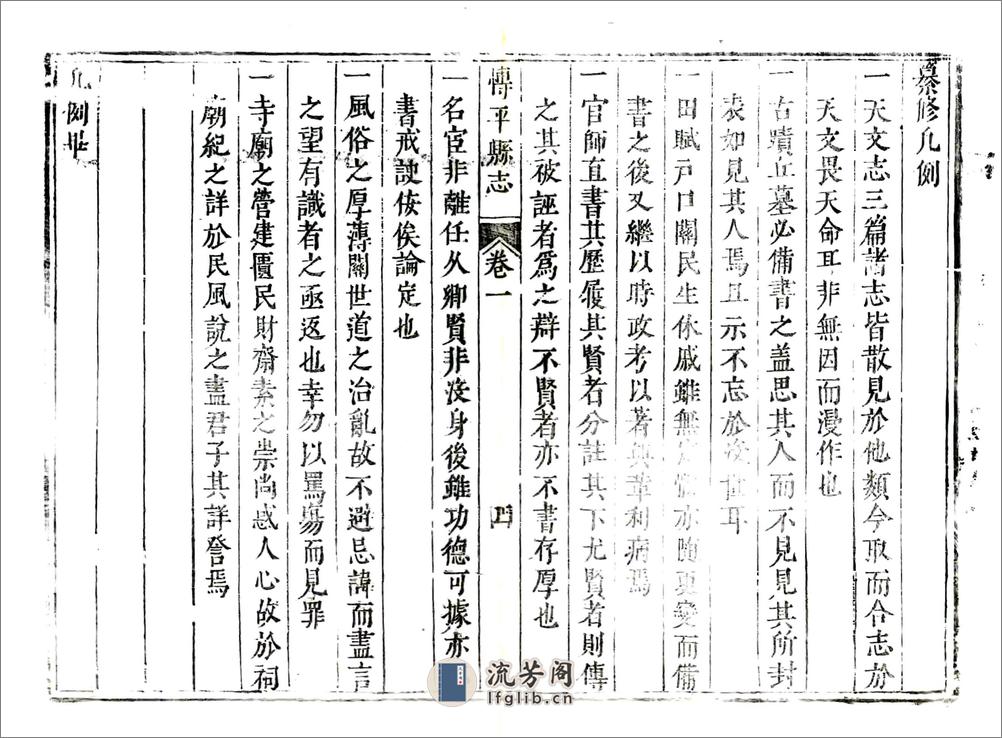 纂修凡例
一天文志三篇諸志皆散見於他類今取而合志於
天文畏天命耳非無因而漫作也
一古蹟丘墓必備書之盖思其人而不見見其所封
表如見其人焉且示不忘於没世耳
一田賦戸口關民生休戚雖無 亦 更變而備
書之後又繼以時政考以著典章利病焉
一官師直書其歷履其賢者分註其下尤賢者則傳
之其被誣者爲之辯不賢者亦不書存厚也
博平縣志
卷一
四
一名宦非離任久鄉賢非没身後雖功德可據亦
書戒諛佞俟論定也
一風俗之厚薄關世道之治亂故不避忌諱而盡言
之望有識者之亟返也幸勿以罵塲而見罪
一寺廟之營建匱民財齋素之崇尚惑人心故於祠
廟紀之詳於民風說之盡君子其詳詧焉
凡例畢
流芳阁
lfglib.cn